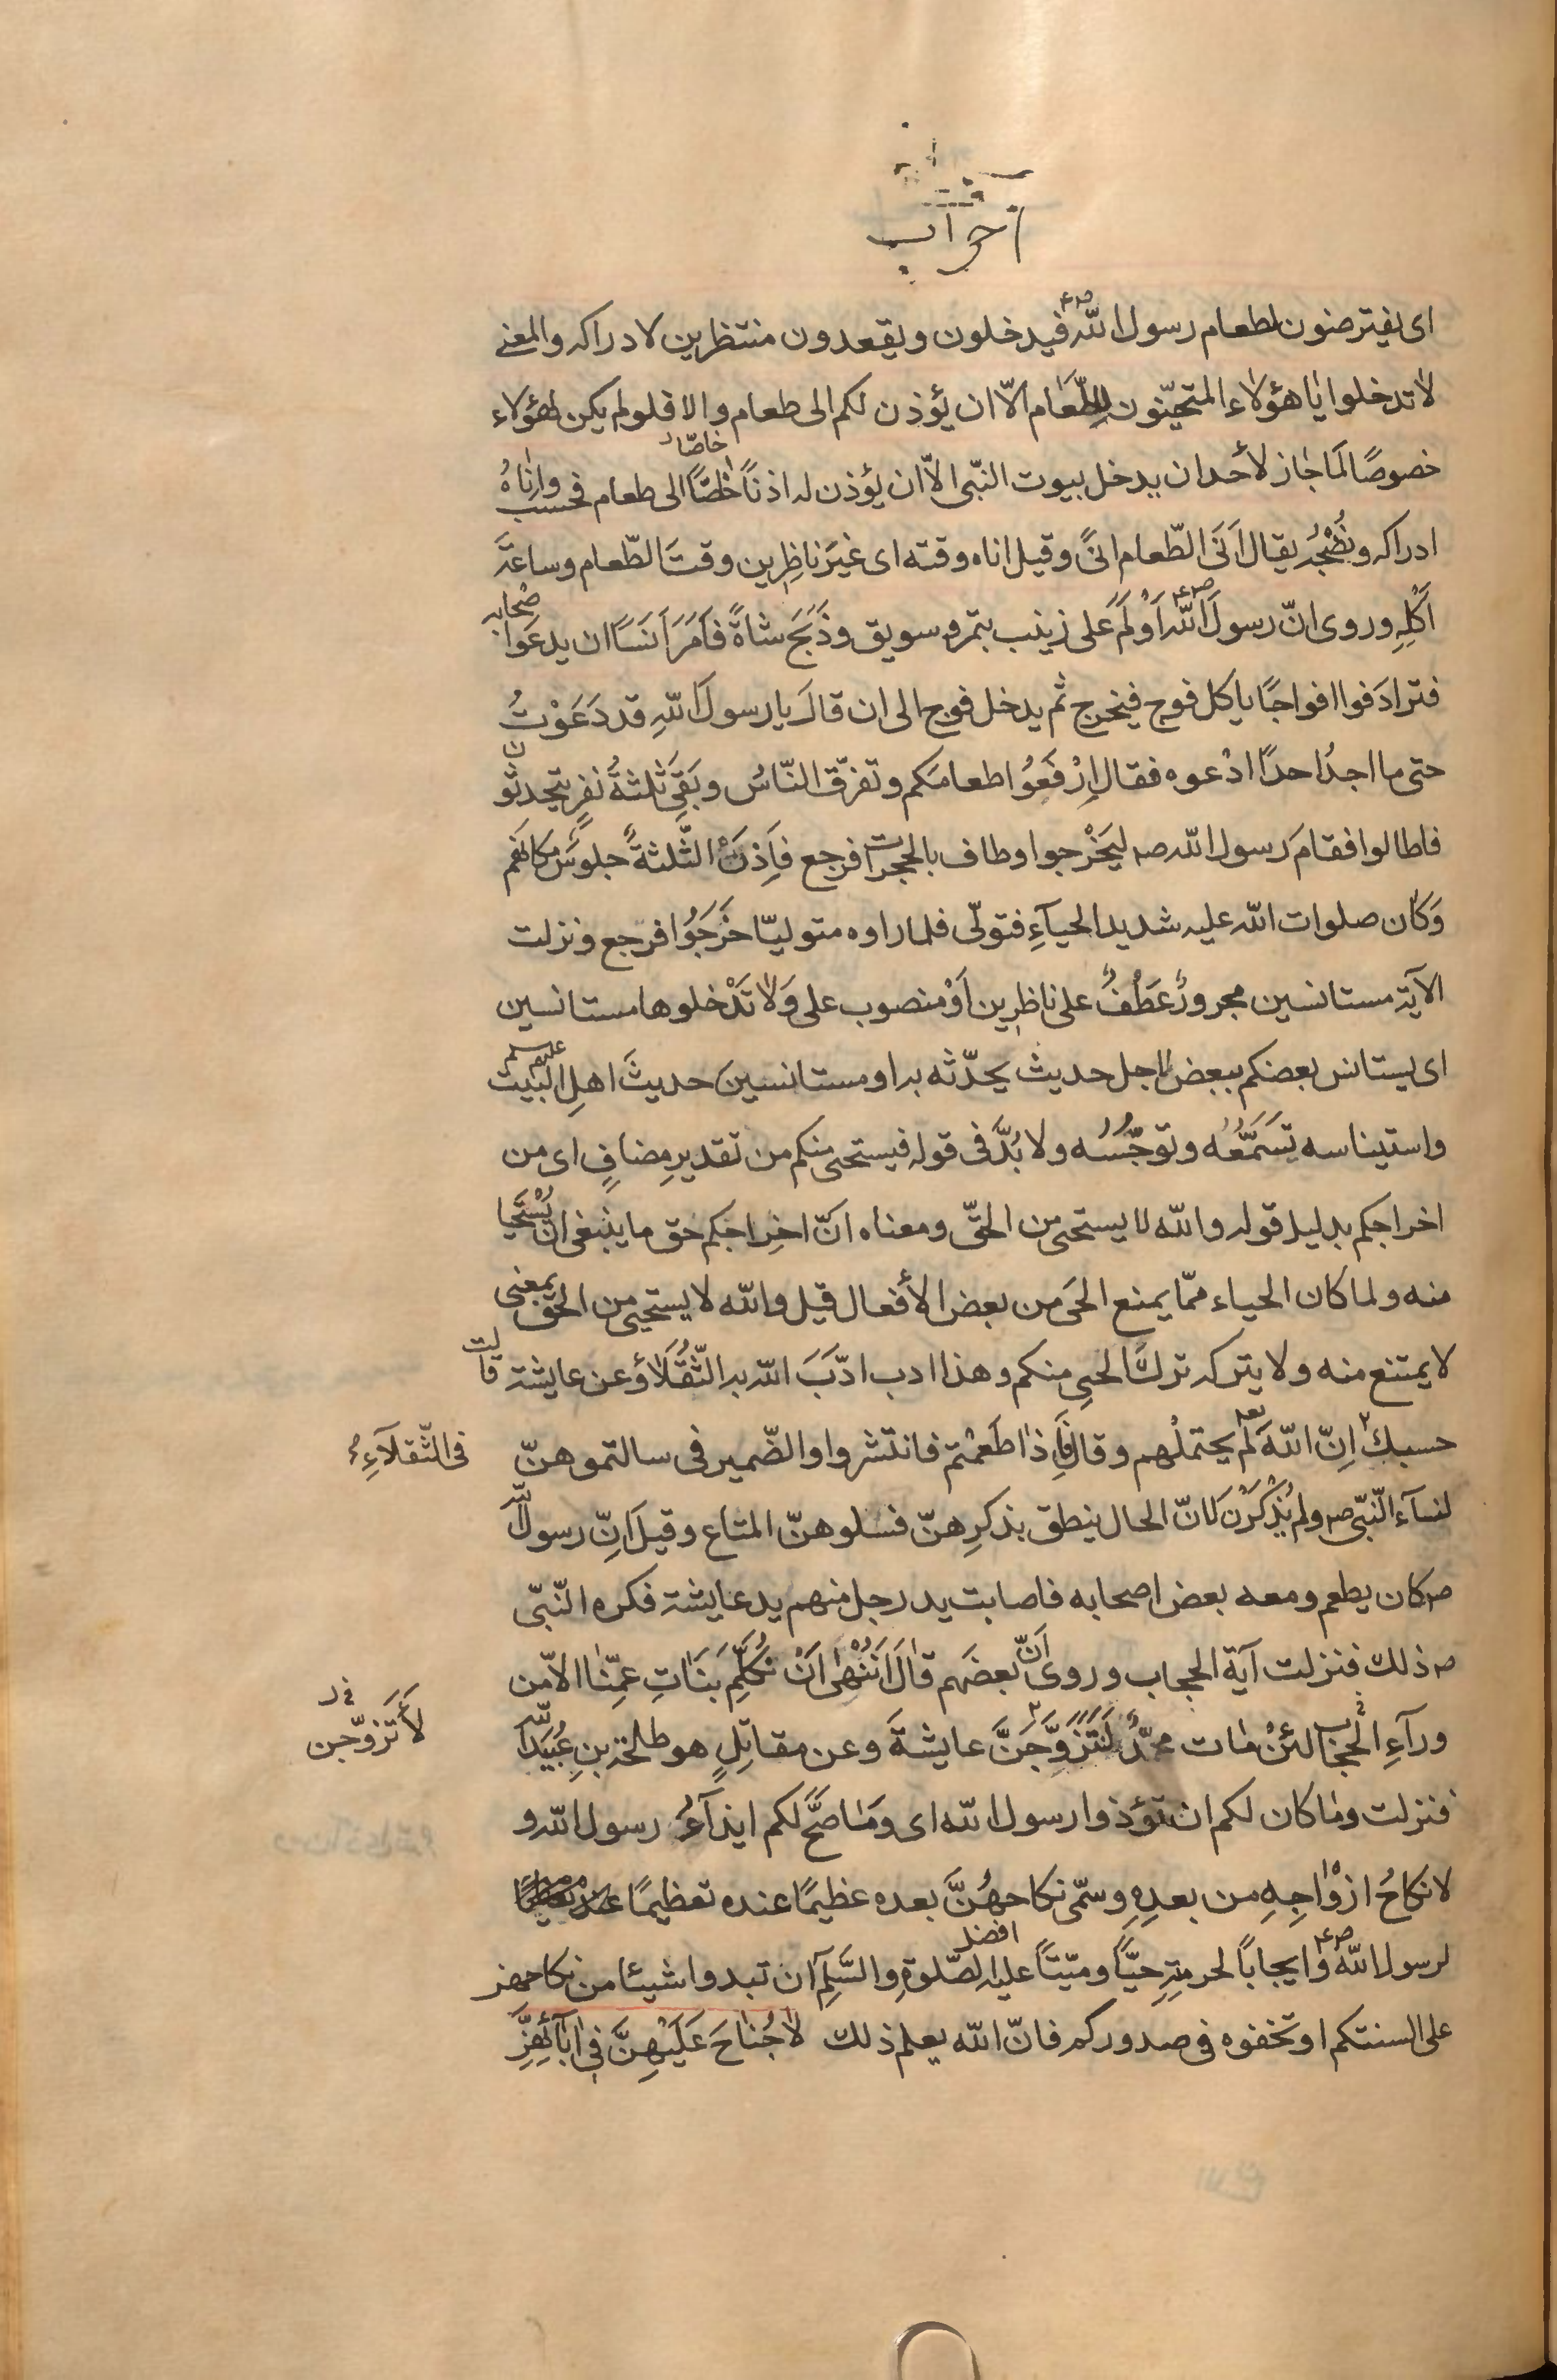 احزاب
ای یفترصنون لطعام رسول اللّٰه صع فیدخلون ویقعدون منتظرین لادراکه والمعنی
لاتدخلوا یا هؤلاء المتحیّنون للطّعام الّا ان یؤذن لکم الی طعام والا فلولم یکن لهؤلاء
خصوصًا لَما جاز لأحد ان یدخل بیوت النّبی الّا ان یؤذن له اذنًا خاصًّا الی طعام فحسب وانٰاهُ
خاصّا
ادراکه ونُضْجُه یقال اَنَی الطّعام انیً وقیل اناه وقته ای غیرَ ناظِرین وقتَ الطّعام وساعةَ
اَکْلِهِ وروی انّ رسولَ اللّٰه صع اَوْلَمَ علی زینب بتمر وسویق وذَبَحَ شاةً فاَمَرَ اَنَسًا ان یدعوَا صْحابه
فترادَفوا افواجًا یاکل فوج فیخرج ثم یدخل فوج الی ان قالَ یا رسولَ اللّٰهِ قد دَعَوْتُ
حتی ما اجدُ احدًا ادْعوه فقال اِرْفَعُوا طعامَکم وتفرّق النّاسُ وبَقِیَ ثلثةُ نفرٍ یتحدثون
فاطالوا فقامَ رسول اللّٰه صہ لیَخْرجوا وطاف بالحجرات فرجع فاِذنْ الثّلثةُ جلوسٌ مکانَهم
وَکان صلوات اللّٰه علیه شدید الحیآءِ فتولّی فلما راوه متولیّا خَرَجُوا فرجع ونزلت
الآیة مستانسین مجرورٌ عَطْفٌ علی ناظِرین اَوْ منصوب علی وَلاٰ تَدْخلوها مستانسین
ای یستانس بعضکم ببعض لاجل حدیث یحدّثه به او مستانسین حدیثَ اهلِ البَیْت علیهم
واستیناسه تَسَمُّعُه وتوجُّسُه ولا بُدَّ فی قوله فیستحیی منکم من تقدیرِ مضافٍ ای من
اخراجکم بدلیل قوله واللّٰه لا یستحیی من الحقّ ومعناه انّ اخراجکم حق ما ینبغی ان یُسْتَحیا
منه ولما کان الحیاء ممّا یمنع الحَی من بعض الأفعال قیل واللّٰه لا یستحیی من الحق بمعنی
لا یمتنع منه ولا یترکه ترکَ الحیِی منکم وهذا ادب ادّبَ اللّٰه به الثُّقَلاٰءَ وعن عایشة قالت
حسبك اِنّ اللّٰه تعہ لم یحتملْهم وقال فَاِذا طَعمْتم فانتشروا والضّمیر فی سالتموهنّ
فی الثّقلآءِ
لنسآء النّبی صہ ولم یُذْکَرْن لانّ الحال ینطق بذکرِهنّ فسلوهنّ المتاع وقیل اِنّ رسول اللّٰه
صہ کان یطعم ومعه بعض اصحابه فاصابت ید رجل منهم ید عایشة فکره النّبیّ
صہ ذلك فنزلت آیة الحجاب وروی اَنّ بعضَهم قٰالَ اَنُنْهٰی اَنْ نُکَلِّمَ بَنَاتِ عمِّنٰا الّا من
ورآءِ الْحجٰاب لئنْ مٰات محمّدٌ لَنَتَزَوَّجَنَّ عایشةَ وعن مقاتِلٍ هو طلحة بنِ عُبَیْد اللّٰه
لَأَتَزوّجن
فنزلت ومٰا کان لکم ان تؤذوا رسول اللّٰه ای وَمَا صَحَّ لکم ایذآءُ رسول اللّٰه و
لا نکاحُ ازوٰاجِهِ من بعدِهِ وسمّی نکاحهُنَّ بعده عظیمًا عنده تعظیمًا
لرسول اللّٰه صع وایجاباً لحرمتِهِ حیًّا ومیّتاً علیه افضل الصّلوةِ والسَّلمِ ان تبدوا شیئا من نکاحهن
علی السنتکم او تخفوه فی صدورکم فانّ اللّٰه یعلم ذلك لاٰ جُنٰاحَ عَلَیْهِنَّ فِی اٰبآئِهِنَّ